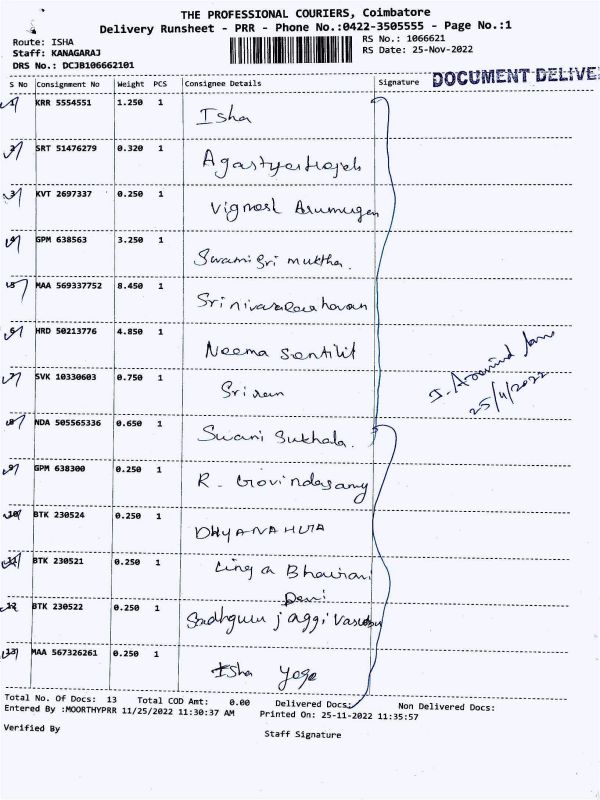 THE PROFESSIONAL COURIERS, Coimbatore
Delivery Runsheet - PRR - Phone No.:0422-3505555 - Page No.:1
Route: ISHA
RS No.: 1066621
Staff: KANAGARAJ
RS Date: 25-Nov-2022
DRS No.: DCJB106662101
DOCUMENT DELIVE
S No Consignment No Weight PCS Consignee Details Signature
1 KRR 5554551 1.250 1 Isha
2 SRT 51476279 0.320 1
3 KVT 2697337 0.250 1 Vignesh Arumugam
4 GPM 638563 3.250 1 Swami Sri muktha.
5 MAA 569337752 8.450 1
6 HRD 50213776 4.850 1 Neema
7 SVK 10330603 0.750 1 Sriram
J. Aravind
25/11/2022
8 NDA 505565336 0.650 1 Swami Sukhada.
9 GPM 638300 0.250 1 R. Govindasamy
10 BTK 230524 0.250 1
11 BTK 230521 0.250 1 Linga Bhairavi
Devi
12 BTK 230522 0.250 1 Sadhguru jaggi Vasudev
13 MAA 567326261 0.250 1 Isha Yoga
Total No. Of Docs: 13 Total COD Amt: 0.00 Delivered Docs: Non Delivered Docs:
Entered By :MOORTHYPRR 11/25/2022 11:30:37 AM Printed On: 25-11-2022 11:35:57
Verified By
Staff Signature